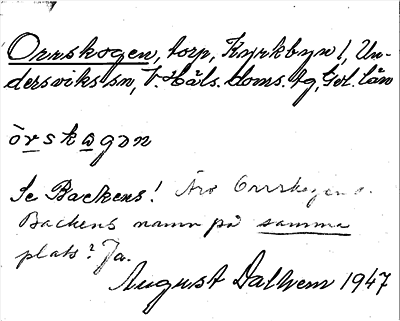 Orrskogen, torp, Kyrkbyn 1, Un-
dersviks sn, V. Häls. doms. tg, Gvl. län
òrskagɔn
Se Backens! Äro Orrskogen o.
Backens namn på samma
plats? Ja.
August Dalhem 1947